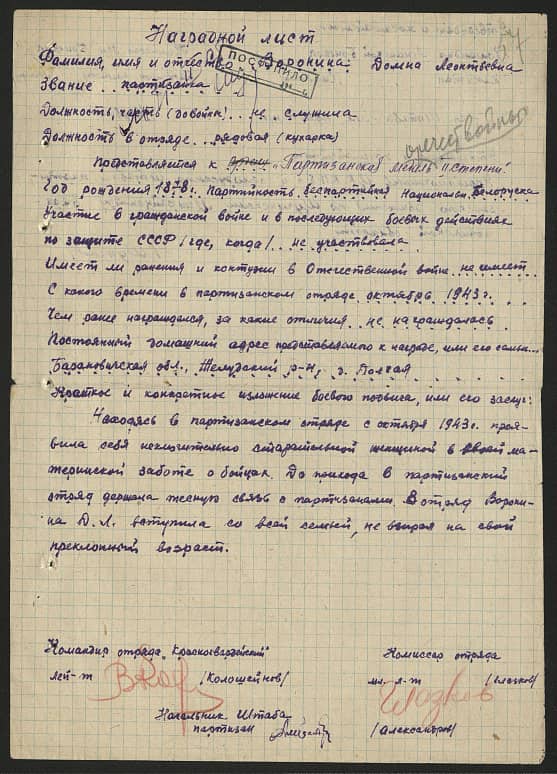 Наградной лист
Фамилия, имя и отчество Воронина Домна Леонтьевна
ПОСТУПИЛО
Звание . . партизанка
Должность, часть (до войны) . . не служила
Должность в отряде . . рядовая (кухарка)
отечеств войны
Представляется к "Партизанская медаль II степени"
Год рождения 1878г. Партийность беспартийная Национальн. белоруска
Участие в гражданской войне и в последующих боевых действиях
по защите СССР /где, когда/ . . не участвовала
Имеет ли ранения и контузии в Отечественной войне не имеет
С какого времени в партизанском отряде октябрь 1943г.
Чем ранее награждался, за какие отличия . . не награждалась
Постоянный домашний адрес представляемого к награде, или его семьи
Барановичская обл., Желудский р-н, д.
Краткое и конкретное изложение боевого подвига, или его заслуг:
Находясь в партизанском отряде с октября 1943г. проя-
вила себя исключительно старательной женщиной в своей ма-
теринской заботе о бойцах. До прихода в партизанский
отряд держала тесную связь с партизанами. В отряд Ворони-
на Д.Л. вступила со всей семьей, не взирая на свой
преклонный возраст.
Командир отряда "Красногвардейский" Комиссар отряда
лей-т /Колошейнов/ мл. л-т /Глазков/
Начальник Штаба
партизан /Александров/